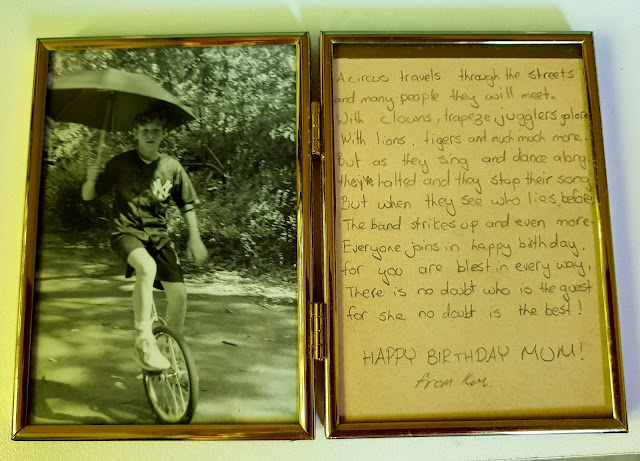 A circus travels through the streets
and many people they will meet.
With clowns, trapeze, jugglers galore
With lions, tigers and much much more.
But as they sing and dance along
they're halted and they stop their song
But when they see who lies before
The band strikes up and even more
Everyone, joins in happy birthday,
for you are blest in every way,
There is no doubt who is the guest
for she no doubt is the best!
HAPPY BIRTHDAY MUM!
from